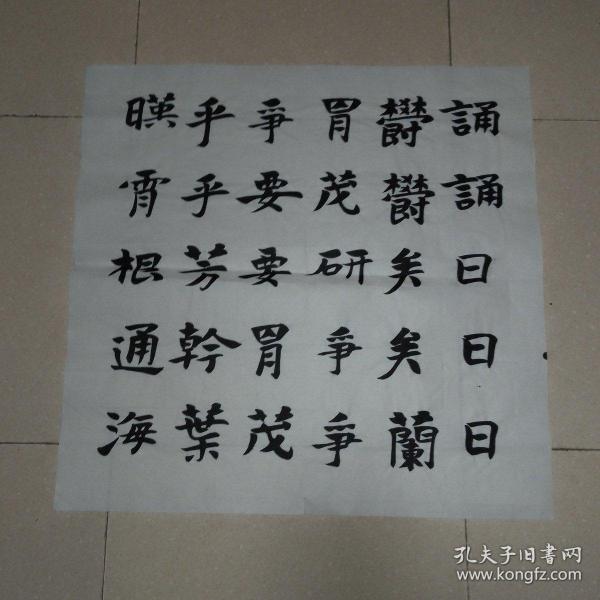 誦誦曰曰曰
欝欝矣矣蘭
胃茂研爭爭
爭要要胃茂
乎乎芳幹葉
暎霄根通海
孔夫子旧書网
www.kongfz.com